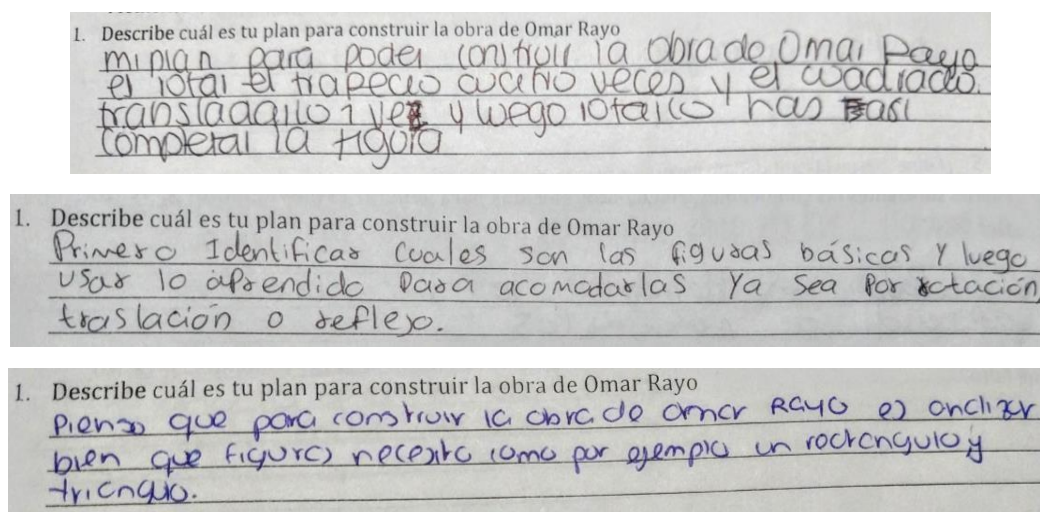 1. Describe cuál es tu plan para construir la obra de Omar Rayo
mi plan para poder construir la obra de Omar Rayo
es rotar el trapecio cuatro veces y el cuadrado
1 vez y luego rotarlo has asi
completar la figura
1. Describe cuál es tu plan para construir la obra de Omar Rayo
Primero Identificar cuales son las figuras básicas y luego
usar lo aprendido para acomodarlas ya sea por rotación,
traslación o reflejo.
1. Describe cuál es tu plan para construir la obra de Omar Rayo
Pienso que para construir la obra de omar Rayo es analizar
bien que figuras necesito como por ejemplo un roctangulo y
triangulo.